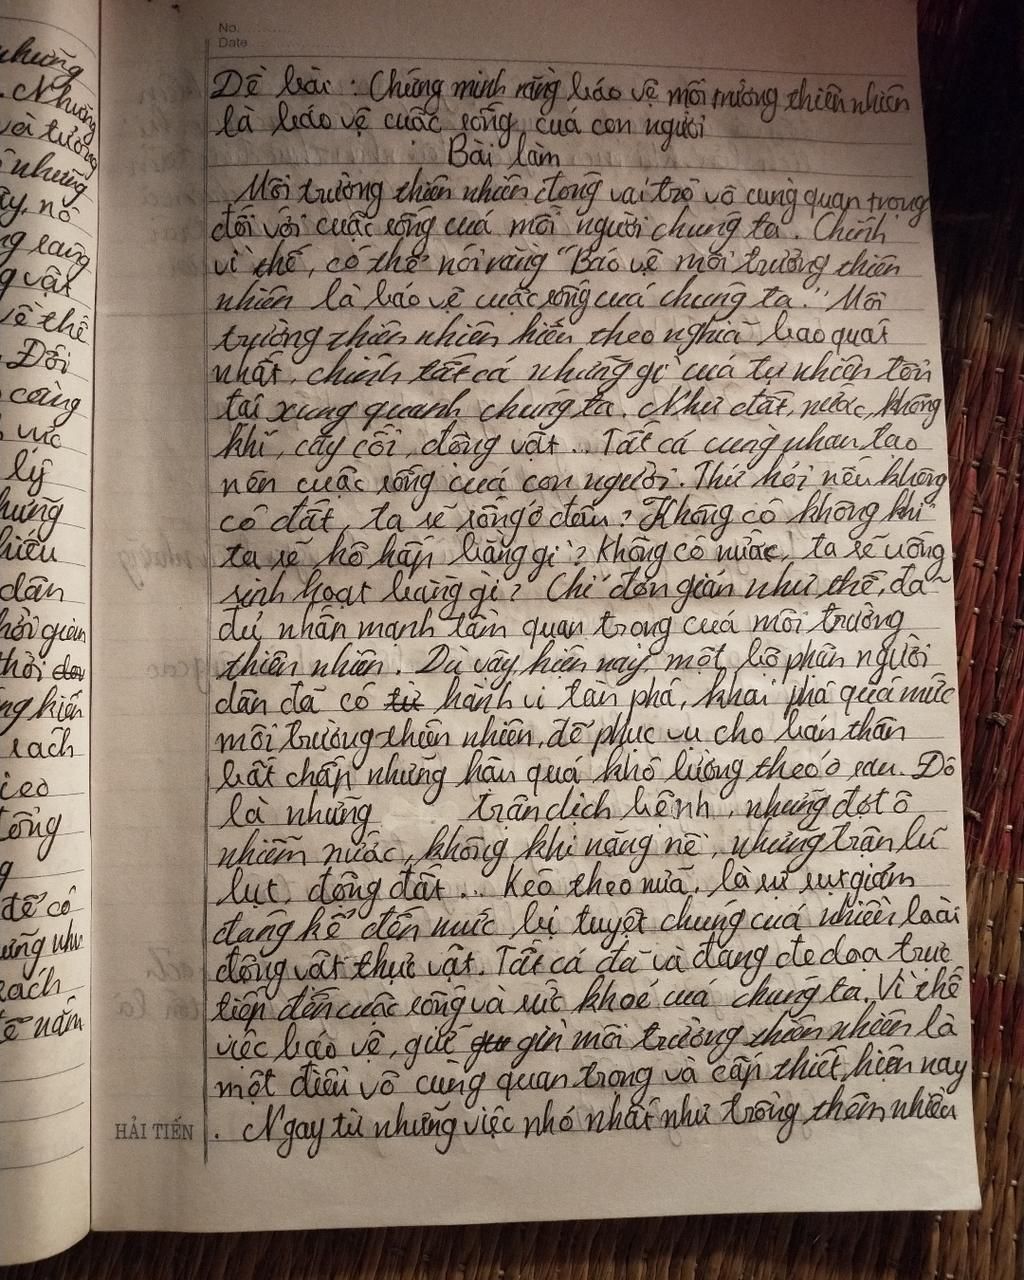 No.
Date
Đề bài : Chứng minh rằng bảo vệ môi trường thiên nhiên
là bảo vệ cuộc sống của con người
Bài làm
Môi trường thiên nhiên đóng vai trò vô cùng quan trọng
đối với cuộc sống của mỗi người chúng ta. Chính
vì thế, có thể nói rằng "Bảo vệ môi trường thiên
nhiên là bảo vệ cuộc sống của chúng ta." Môi
trường thiên nhiên hiểu theo nghĩa bao quát
nhất, chính tất cả những gì của tự nhiên tồn
tại xung quanh chúng ta. Như đất, nước, không
khí, cây cối, động vật... Tất cả cùng nhau tạo
nên cuộc sống của con người. Thử hỏi nếu không
có đất, ta sẽ sống ở đâu? Không có không khí
ta sẽ hô hấp bằng gì? Không có nước, ta sẽ uống,
sinh hoạt bằng gì? Chỉ đơn giản như thế, đã
đủ nhấn mạnh tầm quan trọng của môi trường
thiên nhiên. Dù vậy, hiện nay một bộ phận người
dân đã có từ hành vi tàn phá, khai phá quá mức
môi trường thiên nhiên, để phục vụ cho bản thân
bất chấp những hậu quả khó lường theo ở sau. Đó
là những trận dịch bệnh, những đợt ô
nhiễm nước, không khí nặng nề, những trận lũ
lụt, động đất... Kéo theo nữa, là sự sụt giảm
đáng kể đến mức bị tuyệt chủng của nhiều loài
động vật thực vật. Tất cả đã và đang đe dọa trực
tiếp đến cuộc sống và sức khoẻ của chúng ta. Vì thế
việc bảo vệ, giữ gìn môi trường thiên nhiên là
một điều vô cùng quan trọng và cấp thiết hiện nay
. Ngay từ những việc nhỏ nhất như trồng thêm nhiều
HẢI TIẾN
những
. Những
và tưởng
những
ấy, nó
vật
về thế
Đối
càng
vực
lý
hiểu
dân
hời gian
thời
ng kiến
sách
để có
ững như
sách
ể nắm